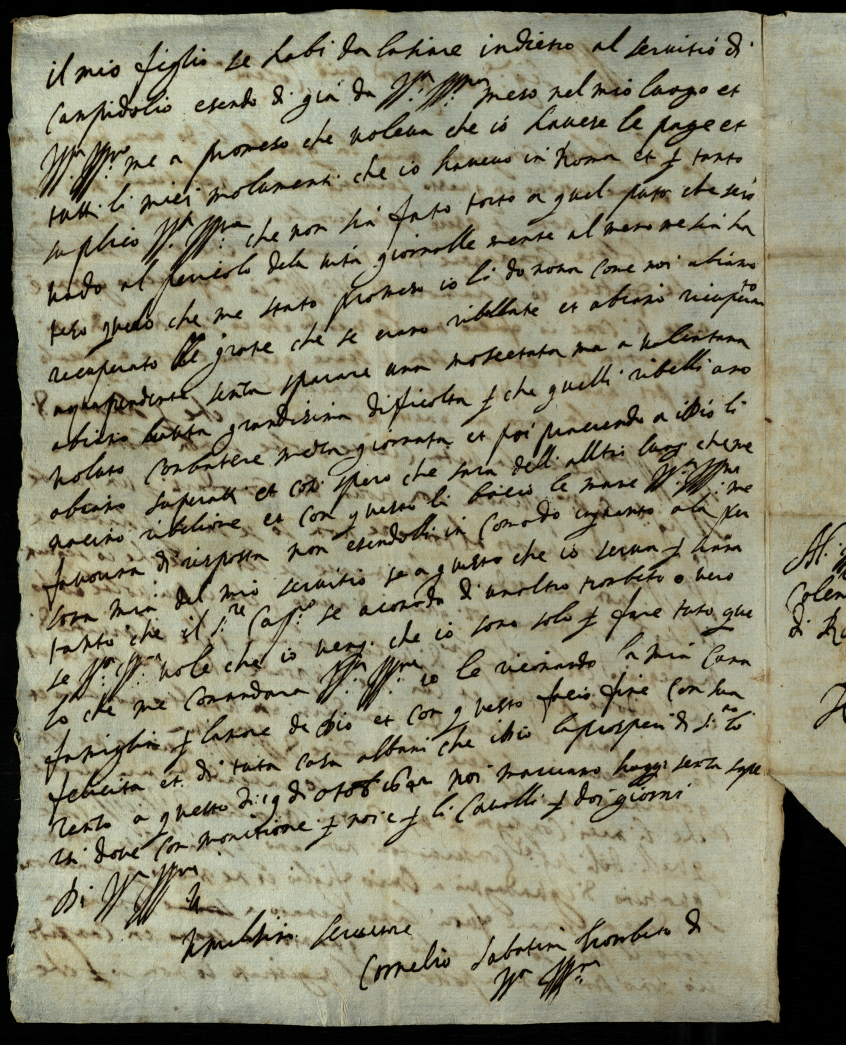 il mio figlio se habi da lasiare indietro al servitio di
Campidolio esendo di gia da V.S. Ill.ma meso nel mio luogo et
V.S. Ill.ma me a promeso che voleva che io havese le page et
tutti li miei molumenti che io havevo in Roma et p tanto
suplico V.S. Ill.ma che non sia fato torto a quel puto che
vado al pericolo dela vita giornalle mente al meno me sia
quelo che me stato promeso io li do nova come noi abiamo
recuperato le grote che se erano ribellate et abiamo recuperato
aquapendente senza sparare una moscettata ma a
abiamo hauta grandisima dificolta p che quelli ribelli ano
voluto conbatere meza giornata et poi piacendo a idio li
abiamo superati et cosi spero che sara dell alltri luogi che ne
ribelione et con questo li bacio le mane V.S. Ill.ma me
favorira di risposta non esendoli in comodo quanto ala per
sona mia del mio servitio se a questo che io serva p
tanto che il s.re Cap.no se acomoda di unaltro trombeto o vero
se V.S. Ill.ma vole che io che io sono solo p fare tuto que
lo che me comandara V.S. Ill.ma io le ricomando la mia cara
famiglia p lamore de Dio et con questo facio fine con sua
felicita et di tuta casa albani che idio la prosperi di
a questo di 19 di otob 1642 noi marciamo hoggi senza sape
re dove con monitione p noi e p li cavalli p doi giorni
Di V.S. Ill.ma
Umilisimo servitore
Cornelio Sabatini trombeto di
V.S. Ill.ma
Al
Colen
di Ro